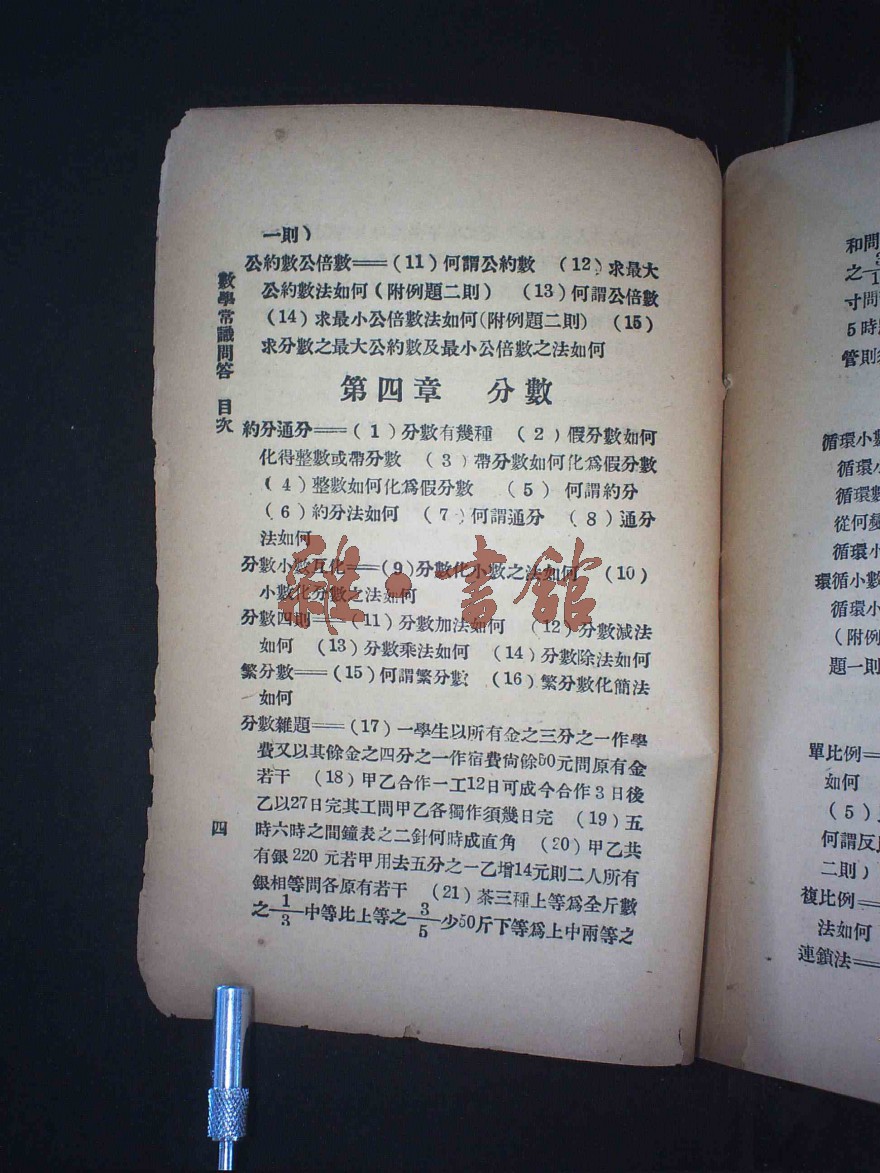 一則)
公約數公倍數══(11)何謂公約數 (12)求最大
公約數法如何(附例題二則) (13)何謂公倍數
(14)求最小公倍數法如何(附例題二則) (15)
求分數之最大公約數及最小公倍數之法如何
第四章 分數
約分通分══(1)分數有幾種 (2)假分數如何
化得整數或帶分數 (3)帶分數如何化爲假分數
(4)整數如何化爲假分數 (5)何謂約分
(6)約分法如何 (7)何謂通分 (8)通分
法如何
分數小數互化══(9)分數化小數之法如何 (10)
小數化分數之法如何
分數四則══(11)分數加法如何 (12)分數減法
如何 (13)分數乘法如何 (14)分數除法如何
繁分數══(15)何謂繁分數 (16)繁分數化簡法
如何
分數雜題══(17)一學生以所有金之三分之一作學
費又以其餘金之四分之一作宿費尙餘50元問原有金
若干 (18)甲乙合作一工12日可成今合作3日後
乙以27日完其工問甲乙各獨作須幾日完 (19)五
時六時之間鐘表之二針何時成直角 (20)甲乙共
有銀220元若甲用去五分之一乙增14元則二人所有
銀相等問各原有若干 (21)茶三種上等爲全斤數
之1/3中等比上等之3/5少50斤下等爲上中兩等之
數學常識問答 目次
四
雜·書館
和問
之
寸問
5時
管則
循環小數
循環小
循環數
從何變
循環小
環循小數
循環小
(附例
題一則
單比例══
如何
(5)
何謂反比
二則)
複比例══
法如何
連鎖法══